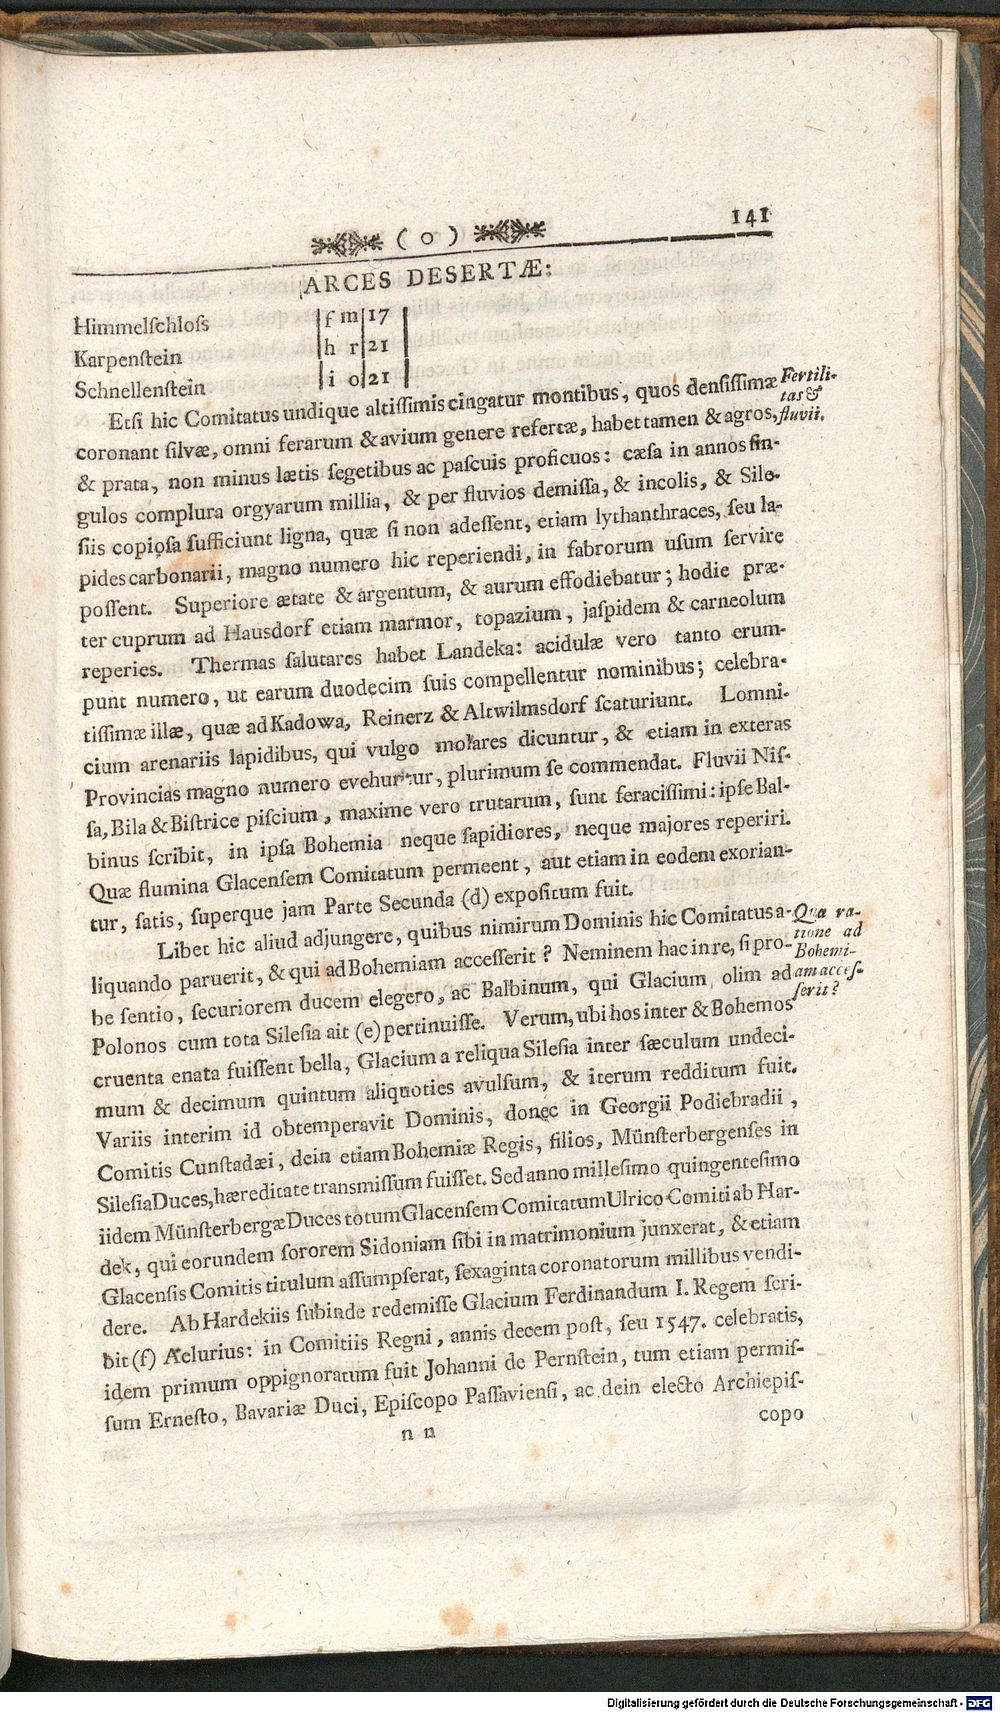 ( o ) 141
ARCES DESERTÆ:
Himmelſchloſs | f m | 17 |
Karpenſtein | h r | 21 |
Schnellenſtein | i o | 21 |
Etſi hic Comitatus undique altiſſimis cingatur montibus, quos denſiſſimæ
Fertili-
tas &
fluvii.
coronant ſilvæ, omni ferarum & avium genere refertæ, habet tamen & agros,
& prata, non minus lætis ſegetibus ac paſcuis proficuos: cæſa in annos ſin-
gulos complura orgyarum millia, & per fluvios demiſſa, & incolis, & Sile-
ſiis copioſa ſufficiunt ligna, quæ ſi non adeſſent, etiam lythanthraces, ſeu la-
pides carbonarii, magno numero hic reperiendi, in fabrorum uſum ſervire
poſſent. Superiore ætate & argentum, & aurum effodiebatur; hodie præ-
ter cuprum ad Hausdorf etiam marmor, topazium, jaſpidem & carneolum
reperies. Thermas ſalutares habet Landeka: acidulæ vero tanto erum-
punt numero, ut earum duodecim ſuis compellentur nominibus; celebra-
tiſſimæ illæ, quæ ad Kadowa, Reinerz & Altwilmsdorf ſcaturiunt. Lomni-
cium arenariis lapidibus, qui vulgo molares dicuntur, & etiam in exteras
Provincias magno numero evehuntur, plurimum ſe commendat. Fluvii Niſ-
ſa, Bila & Biſtrice piſcium, maxime vero trutarum, ſunt feraciſſimi: ipſe Bal-
binus ſcribit, in ipſa Bohemia neque ſapidiores, neque majores reperiri.
Quæ flumina Glacenſem Comitatum permeent, aut etiam in eodem exorian-
tur, ſatis, ſuperque jam Parte Secunda (d) expoſitum fuit.
Libet hic aliud adjungere, quibus nimirum Dominis hic Comitatus a-
Qua ra-
tione ad
Bohemi-
am acceſ-
ſerit?
liquando paruerit, & qui ad Bohemiam acceſſerit? Neminem hac in re, ſi pro-
be ſentio, ſecuriorem ducem elegero, ac Balbinum, qui Glacium olim ad
Polonos cum tota Sileſia ait (e) pertinuiſſe. Verum, ubi hos inter & Bohemos
cruenta enata fuiſſent bella, Glacium a reliqua Sileſia inter ſæculum undeci-
mum & decimum quintum aliquoties avulſum, & iterum redditum fuit.
Variis interim id obtemperavit Dominis, donec in Georgii Podiebradii,
Comitis Cunſtadæi, dein etiam Bohemiæ Regis, filios, Münſterbergenſes in
Sileſia Duces, hæreditate transmiſſum fuiſſet. Sed anno milleſimo quingenteſimo
iidem Münſterbergæ Duces totum Glacenſem Comitatum Ulrico Comiti ab Har-
dek, qui eorundem ſororem Sidoniam ſibi in matrimonium junxerat, & etiam
Glacenſis Comitis titulum aſſumpſerat, ſexaginta coronatorum millibus vendi-
dere. Ab Hardekiis ſubinde redemiſſe Glacium Ferdinandum I. Regem ſcri-
bit (f) Aelurius: in Comitiis Regni, annis decem poſt, ſeu 1547. celebratis,
idem primum oppignoratum fuit Johanni de Pernſtein, tum etiam permiſ-
ſum Erneſto, Bavariæ Duci, Epiſcopo Paſſavienſi, ac dein electo Archiepiſ-
n n copo
Digitalisierung gefördert durch die Deutsche Forschungsgemeinschaft - DFG